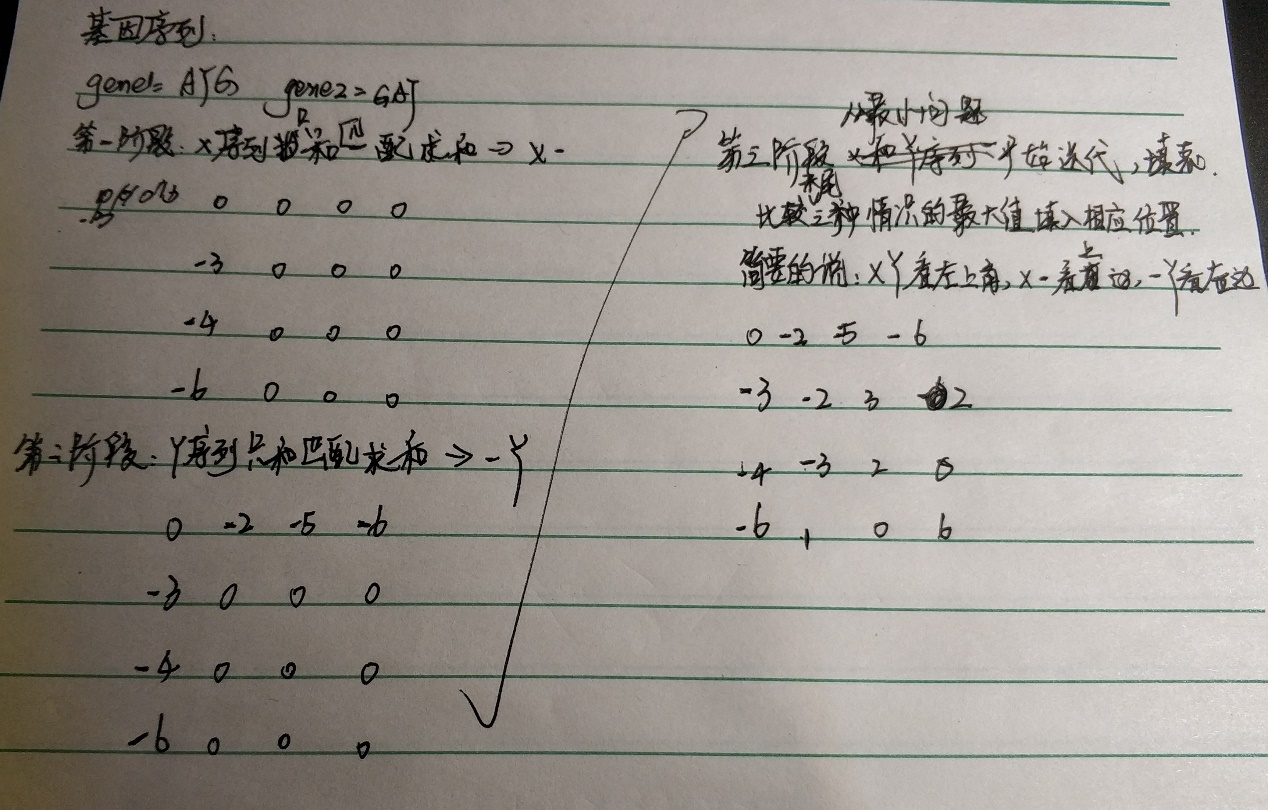 基因序列:
gene1= ATG gene2= GAT
第一阶段: X序列只和匹配求和 → X -
0 0 0 0
-3 0 0 0
-4 0 0 0
-6 0 0 0
第二阶段: Y序列只和匹配求和 → - Y
0 -2 -5 -6
-3 0 0 0
-4 0 0 0
-6 0 0 0
从最小问题
第三阶段 X和Y序列 开始迭代,填表.
比较末尾三种情况的最大值填入相应位置.
简要的说: XY看左上角, X-看上边, -Y看左边
0 -2 -5 -6
-3 -2 3 2
-4 -3 2
-6 1 0 6